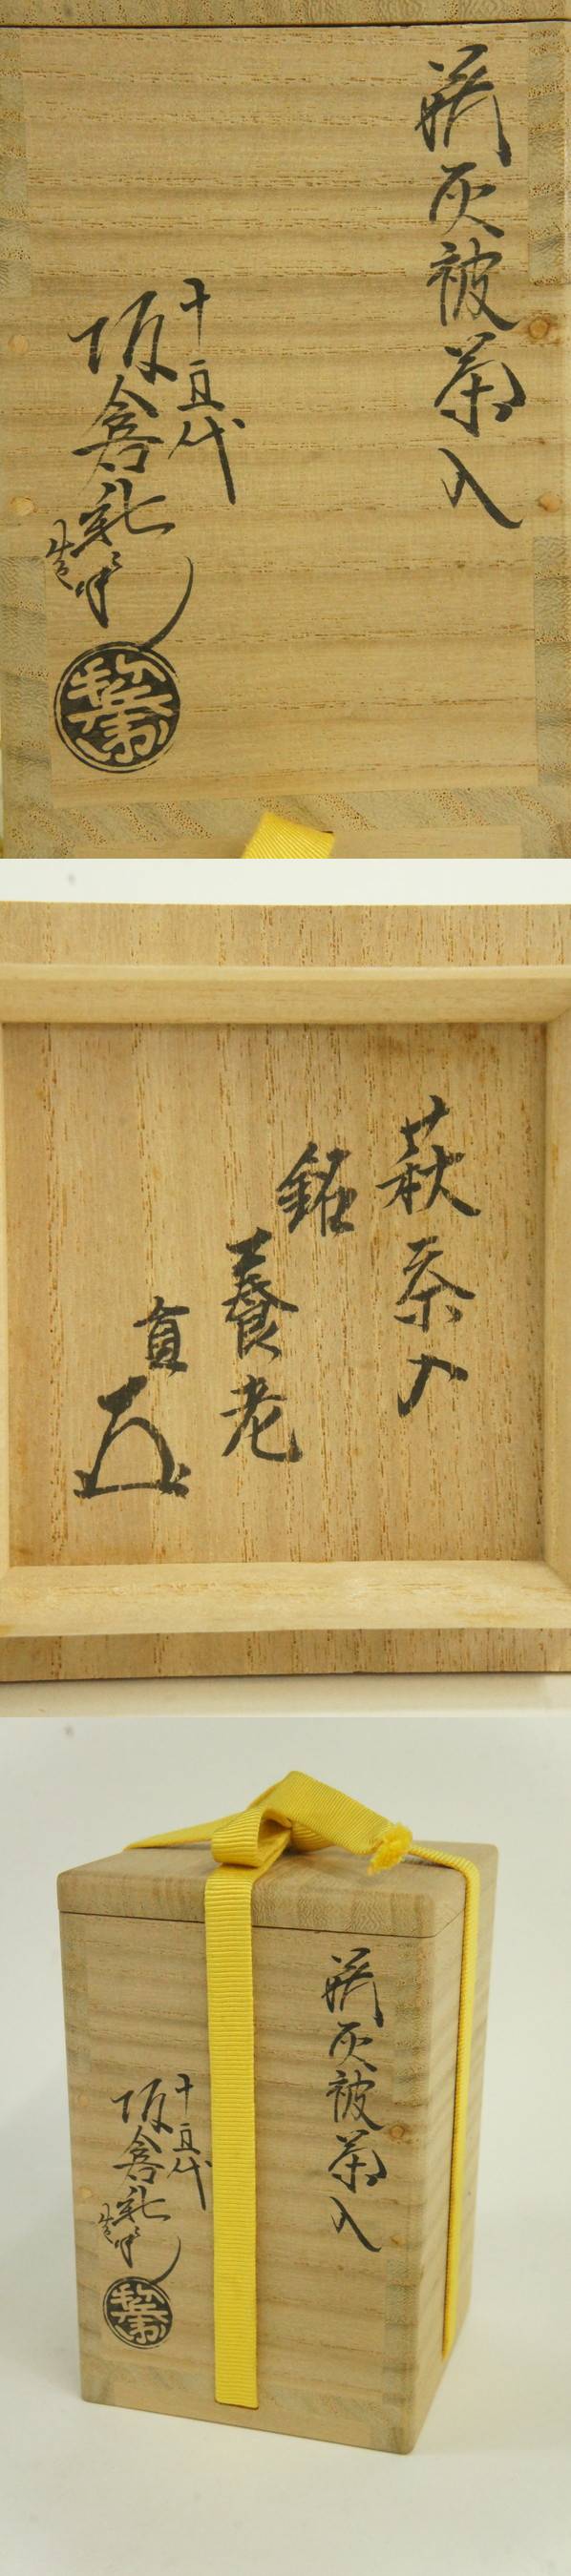 萩灰被茶入
十五代
坂倉新兵衛
造
萩茶入
銘
養老
直
萩灰被茶入
十五代
坂倉新兵衛
造